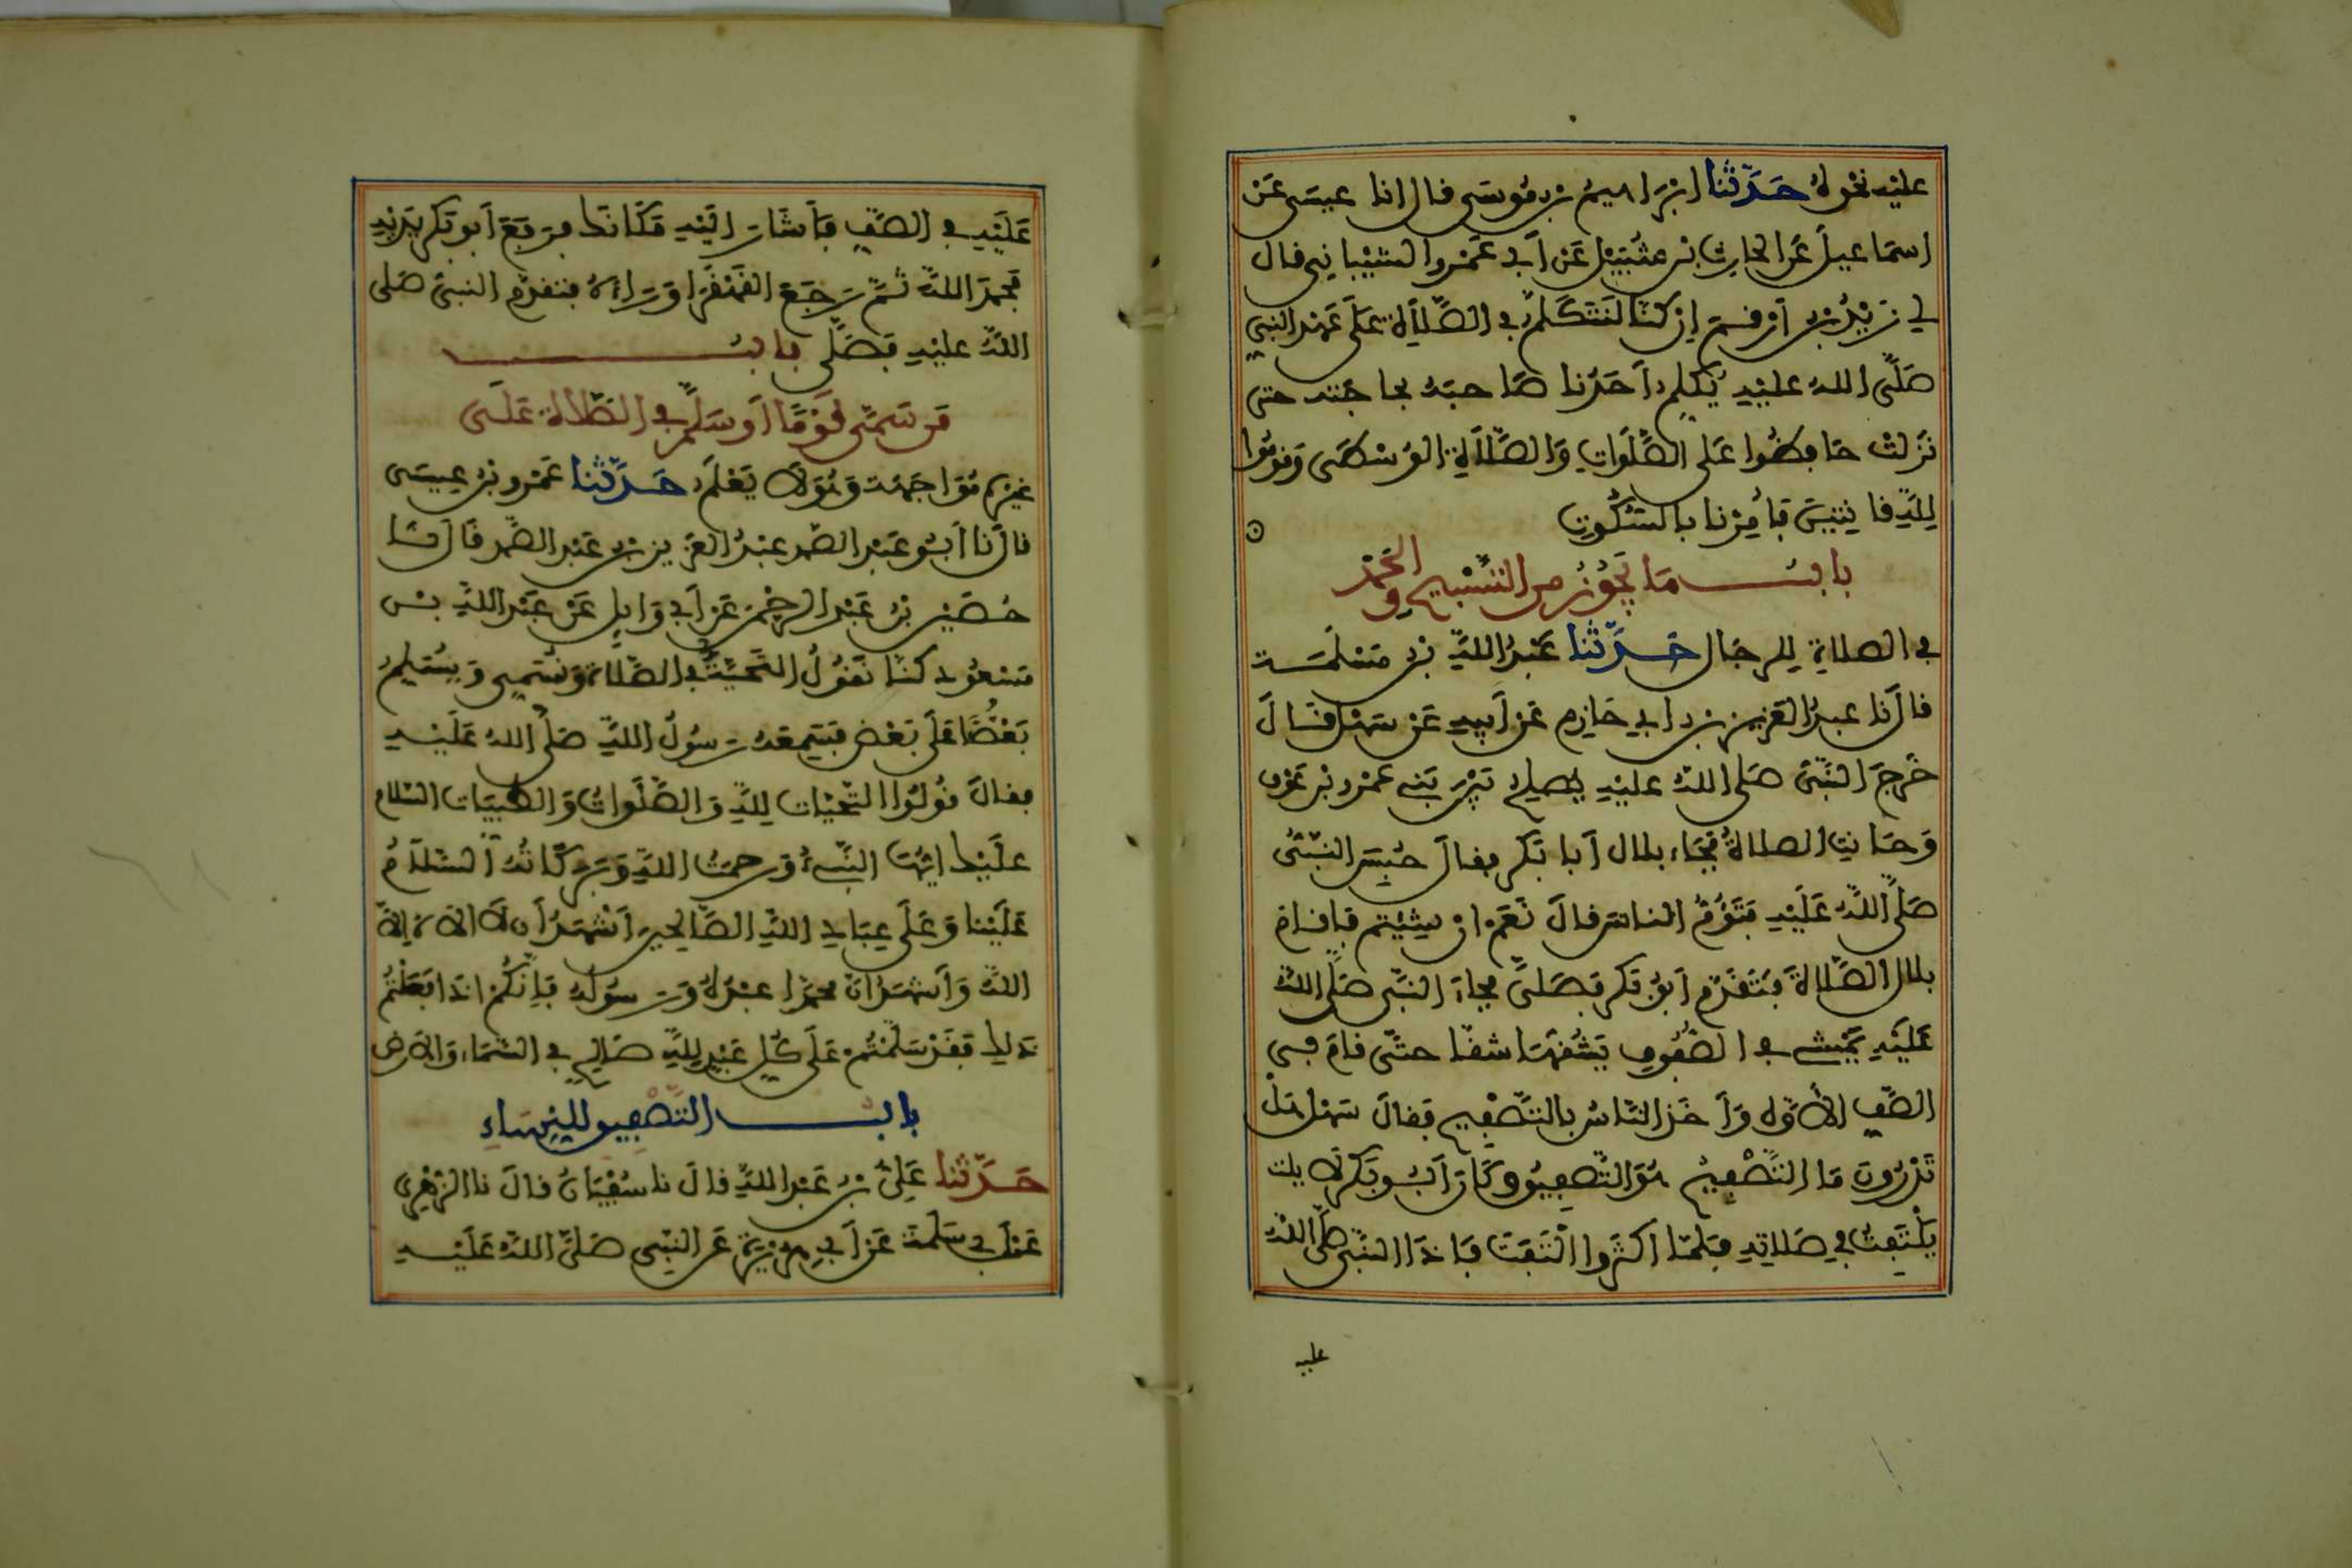 عليه نحوه حَدَّثَنا ابْرَاهيمُ بن مُوسَى قال انا عيسَى عَن
اسمَاعيلَ عَن الحارِث بْن شُبَيْل عَن أبي عَمْرو الشيْبانِي قال
لي زيْدُ بن أرْقم إن كنّا لنَتَكَلّمُ في الصَّلَاةِ عَلَى عَهْد النبي
صَلَّى اللهُ عليْهِ يُكلمُ أحَدُنا صَاحبَهُ بحاجَته حتى
نَزَلَتْ حَافِظُوا عَلى الصَّلَوَاتِ وَالصَّلَاةِ الوُسْطَى وَقومُوا
لِلَّهِ قانِتِينَ فَأُمِرْنا بالسُّكُوتِ
بابُ مَا يَجُوزُ من التسْبِيح وَالحَمْد
في الصلاةِ للرجَال حَدَّثَنا عَبْدُ اللَّه بن مَسْلَمَة
قالَ نا عبدُ العَزيز بن أبي حَازِم عَن أبيهِ عَن سَهْل قَالَ
خَرجَ النَّبيُّ صَلى اللهُ عليْهِ يصلحُ بَيْنَ بَنِي عَمْرو بْن عَوْف
وَحَانتِ الصلاةُ فَجَاءَ بلال أَبا بَكر فقالَ حُبسَ النبيُّ
صَلَّى اللَّهُ عَلَيْهِ فَتَؤُمُّ الناسَ قالَ نَعَم إنْ شِئتم فأقام
بلال الصَّلاةَ فَتَقَدَّم أبُو بَكر فَصَلَّى فجاءَ النَّبي صَلَّى اللهُ
عَلَيْهِ يَمْشِي في الصُّفُوفِ يَشُقُّهَا شقًّا حتَّى قامَ في
الصَّف الأوَّل وَأَخَذَ النَّاسُ بالتَّصْفِيح فَقالَ سَهْل هَلْ
تَدْرُونَ مَا التَّصْفِيحُ هُوَ التَّصفِيقُ وكَانَ أَبُو بَكر لا يلت
يَلْتَفِتُ في صَلَاتِهِ فَلَمَّا أكثَرُوا الْتَفَتَ فَإذَا النَّبي صَلَّى اللهُ
عليه
عَلَيْهِ في الصَّفِ فَأَشَارَ إلَيْهِ مَكَانَكَ فرَفَعَ أَبو بَكر يَدَيْهِ
فحَمدَ اللَّهَ ثُمَّ رَجَعَ القَهْقَرَا وَرَاءَهُ فتقدَّم النبيُّ صَلى
اللهُ عليْهِ فَصَلَّى بابُ
مَن سَمَّى قَوْمًا أَوسَلَّمَ في الصَّلاةِ عَلَى
غيرِهِ مُوَاجَهَة وَهُوَ لاَ يَعْلَم حَدَّثَنا عَمْرو بْنُ عِيسَى
قالَ نا أَبُو عَبْد الصَّمد عبْدُ العَزيزِ بن عَبْد الصَّمد قَالَ نَا
حُصَيْنُ بْنُ عَبْد الرحْمَن عَن أَبي وَايِل عَنْ عَبْد اللَّهِ بْن
مَسْعُودٍ كنَّا نَقُولُ التَّحيَّةُ في الصَّلاةِ وَنُسَمِي وَيُسَلِّمُ
بَعْضُنَا عَلَى بَعْض فَسَمِعَهُ رَسُولُ اللَّهِ صَلَّى اللهُ عَلَيْهِ
فقالَ قُولُوا التَّحيَّات لِلَّهِ وَالصَّلَواتُ وَالطَّيّبَات السَّلام
علَيْكَ أيُّهَا النَّبيُّ وَرحمَتُ اللَّهِ وَبَركَاتُهُ السَّلَامُ
عَلَيْنا وَعَلَى عِبَادِ اللَّهِ الصَّالحِينَ أَشْهَدُ أَن لاَ الاهَ إلاَّ
اللَّهُ وَأَشهَدُ أنَّ محمَّدا عَبْدُهُ وَرَسُولُهُ فَإنَّكُم إذَا فَعَلْتُمْ
ذَلِكَ فَقَدْ سَلَّمْتُمْ عَلَى كُلِّ عَبْدٍ لِلَّهِ صَالِحٍ في السَّمَاءِ وَالأَرض
بابُ التَّصْفِيقِ لِلنِّسَاءِ
حَدَّثَنا عَلِيُّ بنُ عَبْد اللَّهِ قالَ نا سُفْيَانُ قالَ نا الزُّهْرِي
عَن أبي سَلَمة عَن أبي هريْرَة عَن النَّبي صَلَّى اللَّهُ عَلَيْهِ